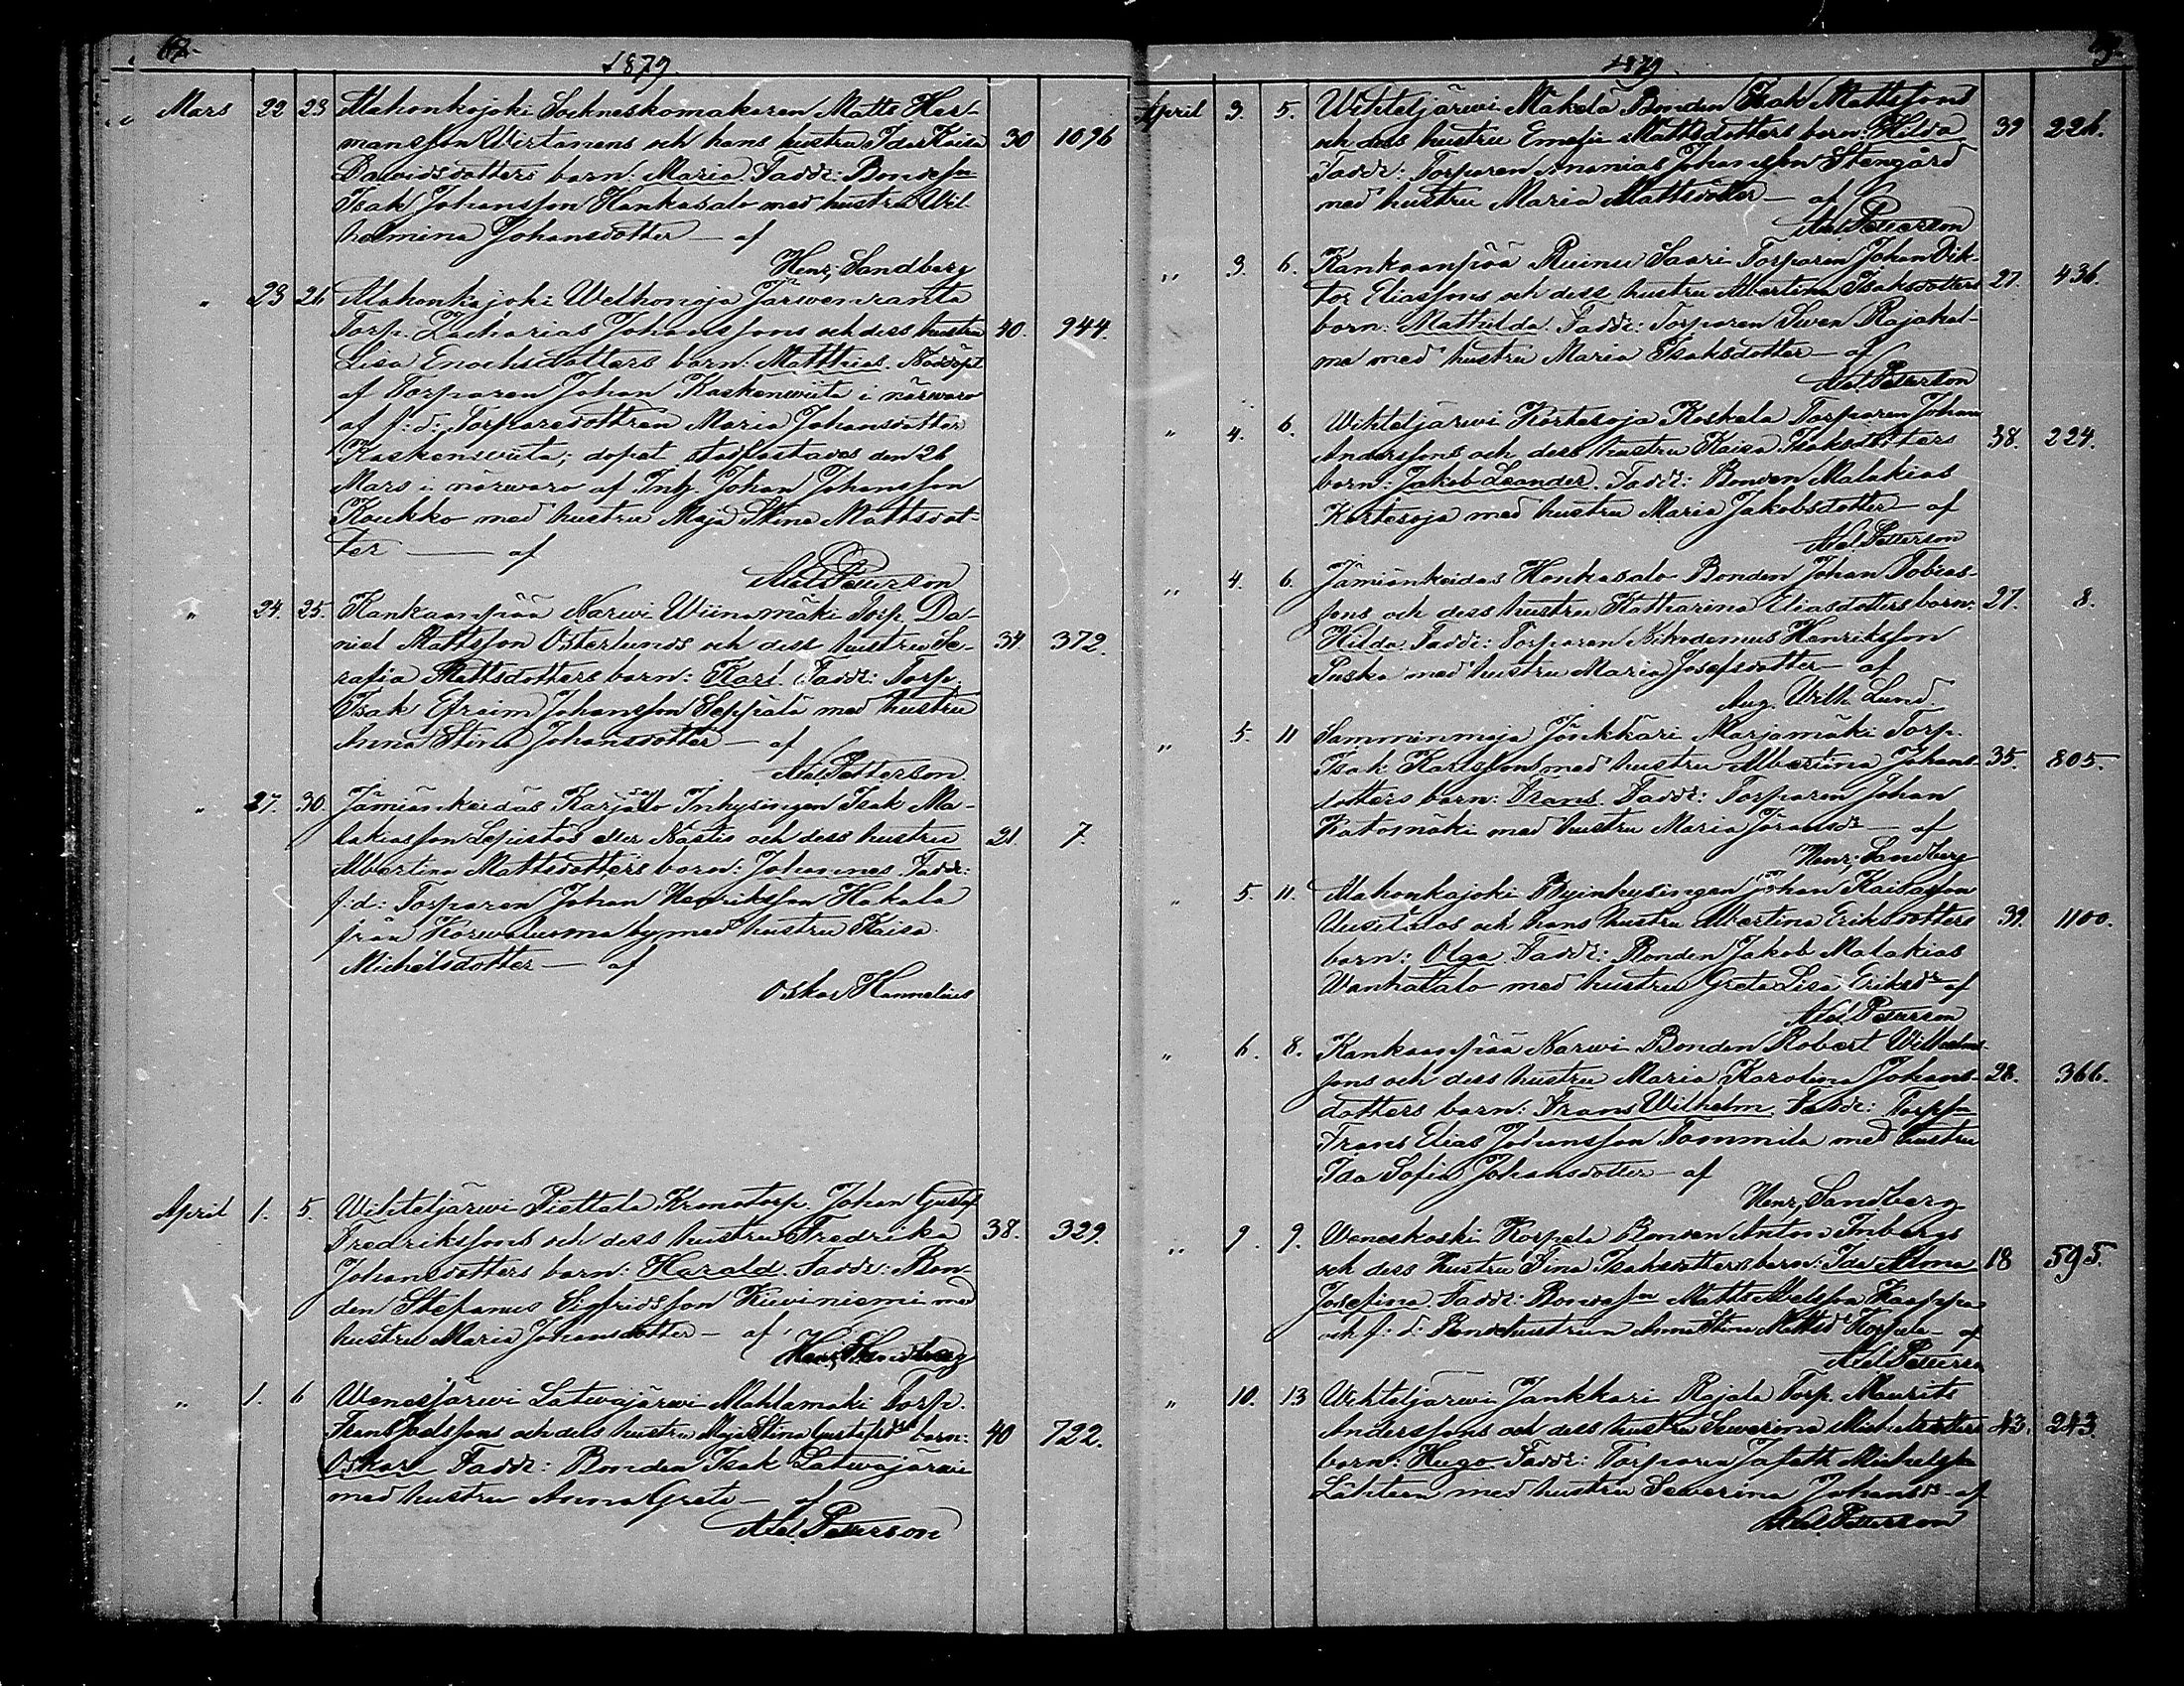 1879.
Mars 22 23 Alahonkajoki Sockneskomakaren Matts Her-
mansson Wirtanens och hans hustru Ida Kaisa 30 1096
Davidsdotters barn: Maria. Faddr: Bondesn
Isak Johansson Honkasalo med hustru Wil-
helmina Johansdotter — af
Henr. Sandberg
" 23 26 Alahonkajoki Welhonoja Järwenranta
Torp. Zacharias Johanssons och dess hustru 40. 944.
Lisa Enochsdotters barn: Matthias. Nöddöpt
af Torparen Johan Kaskenwiita i närwaro
af f: d: Torparedottren Maria Johansdotter
Kaskenwiita; dopet stadfästades den 26
Mars i närwaro af Inh. Johan Johansson
Koukko med hustru Maja Stina Mattsdot-
ter — af
Axel Petterson
" 24. 25. Kankaanpää Narwi Wiinamäki Torp. Da-
niel Mattsson Österlunds och dess hustru Se- 34 372.
rafia Mattsdotters barn: Karl. Faddr: Torp.
Isak Efraim Johansson Seppälä med hustru
Anna Stina Johansdotter — af
Axel Petterson.
" 27. 30. Jämiänkeidas Karjasalo Inhysingen Isak Ma-
lakiasson Lepistös eller Nästis och dess hustru 21. 7.
Albertina Mattsdotters barn: Johannes. Faddr:
f: d: Torparen Johan Henriksson Hakala
från Korwaluoma by med hustru Kaisa
Michelsdotter — af
Oskar Hannelius
April 1. 5. Wihteljärwi Piettala Kronotorp. Johan Gustaf
Fredrikssons och dess hustru Fredrika 38. 329.
Johansdotters barn: Harald. Faddr: Bon-
den Stefanus Sigfridsson Kiviniemi med
hustru Maria Johansdotter — af
Henr. Sandberg
" 1. 6 Wenesjärwi Latwajärwi Mahlamäki Torp.
Frans Joelssons och dess hustru Maja Stina Gustafsdrs barn: 40 722.
Oskar. Faddr: Bonden Isak Latwajärwi
med hustru Anna Greta — af
Axel Petterson
1879.
April 3. 5. Wihteljärwi Mäkelä Bonden Isak Mattssons
och dess hustru Emelie Mattsdotters barn: Hilda 39 226.
Faddr: Torparen Ananias Johansson Stengård
med hustru Maria Mattsdotter — af
Axel Petterson
" 3. 6. Kankaanpää Ruinu Saari Torparen Johan Vik-
tor Eliassons och dess hustru Albertina Isaksdotters 27. 436.
barn: Mathilda. Faddr: Torparen Swen Rajahal-
me med hustru Maria Isaksdotter — af
Axel Petterson
" 4. 6. Wihteljärwi Kortesoja Koskela Torparen Johan
Anderssons och dess hustru Kaisa Isaksdotters 38. 224.
barn: Jakob Leander. Faddr: Bonden Malakias
Kortesoja med hustru Maria Jakobsdotter — af
Axel Petterson
" 4. 6. Jämiänkeidas Honkasalo Bonden Johan Tobias-
sons och dess hustru Katharina Eliasdotters barn: 27. 8.
Hilda. Faddr: Torparen Nikodemus Henriksson
Puska med hustru Maria Josefsdotter — af
Aug. Wilh. Lund.
" 5. 11 Samminmaja Jönkkäri Marjamäki Torp.
Isak Karlssons med hustru Albertina Johans- 35. 805.
dotters barn: Frans. Faddr: Torparen Johan
Katomäki med hustru Maria Göransdr — af
Henr. Sandberg
" 5. 11. Alahonkajoki Byinhysingen Johan Kaisasson
Uusitalos och hans hustru Albertina Eriksdotters 39. 1100.
barn: Olga. Faddr: Bonden Jakob Malakias
Wanhatalo med hustru Greta Lisa Eriksdr af
Axel Petterson
" 6. 8. Kankaanpää Narwi Bonden Robert Wilhelms-
sons och dess hustru Maria Karolina Johans- 28. 366.
dotters barn: Frans Wilhelm. Faddr: Torpsn
Frans Elias Johansson Tommila med hustru
Ida Sofia Johansdotter — af
Henr. Sandberg
" 9. 9. Weneskoski Korpela Bonden Anton Imbergs
och dess hustru Fina Isaksdotters barn: Ida Alma 18 595.
Josefina. Faddr: Bondesn Matts Abelsson Kaappa
och f: d: Bondehustrun Anna Stina Mattsdr Korpela — af
Axel Petterson
" 10. 13 Wihteljärwi Jankkari Rajala Torp. Maurits
Anderssons och dess hustru Sewerina Michelsdotters 43. 243.
barn: Hugo. Faddr: Torparen Jafeth Michelss
Lähteen med hustru Sewerina Johansdr — af
Axel Petterson